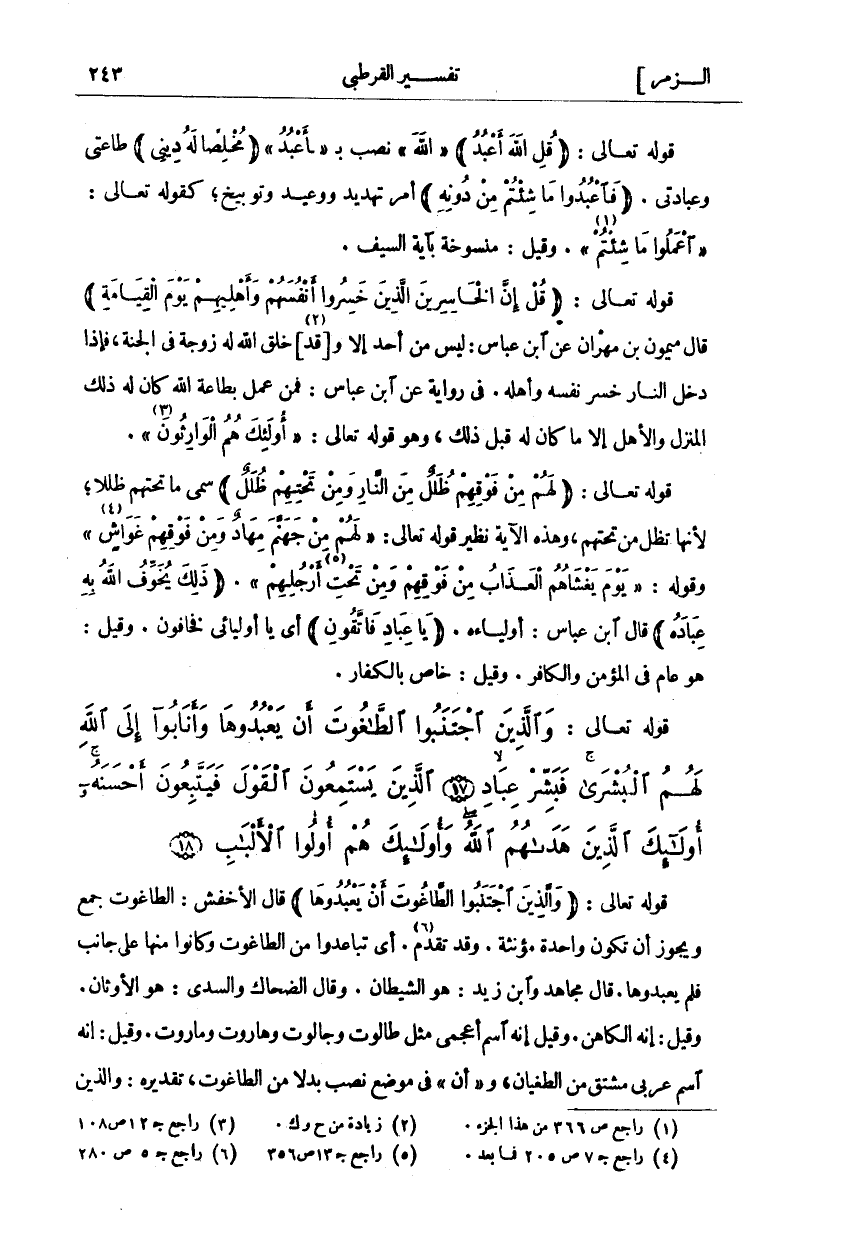 الـــزمر] تفســـير القرطبى ٢٤٣
قوله تعـالى : ﴿ قُلِ اللهَ أَعْبُدُ ﴾ « اللهَ » نصب بـ « ـأَعْبُدُ » ﴿ مُخْلِصًا لَهُ دِينِى ﴾ طاعتى
وعبادتى . ﴿ فَٱعْبُدُوا مَا شِئْتُمْ مِنْ دُونِهِ ﴾ أمر تهديد ووعيد وتوبيخ؛ كقوله تعـالى :
« ٱعْمَلُوا مَا شِئْتُمْ(١) » . وقيل : منسوخة بآية السيف .
قوله تعـالى : ﴿ قُلْ إِنَّ الْخَاسِرِينَ الَّذِينَ خَسِرُوا أَنْفُسَهُمْ وَأَهْلِيهِمْ يَوْمَ الْقِيَامَةِ ﴾
قال ميمون بن مهْران عن ٱبن عباس : ليس من أحد إلا و[قد(٢)] خلق الله له زوجة فى الجنة، فإذا
دخل النـار خسر نفسه وأهله . فى رواية عن ٱبن عباس : فمن عمل بطاعة الله كان له ذلك
المنزل والأهل إلا ما كان له قبل ذلك ، وهو قوله تعالى : « أُولَئِكَ هُمُ الْوَارِثُونَ(٣) » .
قوله تعـالى : ﴿ لَهُمْ مِنْ فَوْقِهِمْ ظُلَلٌ مِنَ النَّارِ وَمِنْ تَحْتِهِمْ ظُلَلٌ ﴾ سمى ما تحتهم ظللا؛
لأنها تظل من تحتهم، وهذه الآية نظير قوله تعالى: « لَهُمْ مِنْ جَهَنَّمَ مِهَادٌ وَمِنْ فَوْقِهِمْ غَوَاشٍ(٤) »
وقوله : « يَوْمَ يَغْشَاهُمُ الْعَـذَابُ مِنْ فَوْقِهِمْ وَمِنْ تَحْتِ أَرْجُلِهِمْ(٥) » . ﴿ ذَلِكَ يُخَوِّفُ اللهُ بِهِ
عِبَادَهُ ﴾ قال ٱبن عباس : أوليـاءه . ﴿ يَا عِبَادِ فَاتَّقُونِ ﴾ أى يا أوليائى فخافون . وقيل :
هو عام فى المؤمن والكافر . وقيل : خاص بالكفار .
قوله تعـالى : وَٱلَّذِينَ ٱجْتَنَبُوا ٱلطَّـٰغُوتَ أَن يَعْبُدُوهَا وَأَنَابُوٓا إِلَى ٱللَّهِ
لَهُـمُ ٱلْبُشْرَىٰ ۚ فَبَشِّرْ عِبَادِ ۙ ١٧ ٱلَّذِينَ يَسْتَمِعُونَ ٱلْقَوْلَ فَيَتَّبِعُونَ أَحْسَنَهُۥٓ ۚ
أُولَـٰٓئِكَ ٱلَّذِينَ هَدَىٰهُمُ ٱللَّهُ ۖ وَأُولَـٰٓئِكَ هُمْ أُولُوا ٱلْأَلْبَـٰبِ ١٨
قوله تعالى : ﴿ وَالَّذِينَ ٱجْتَنَبُوا الطَّاغُوتَ أَنْ يَعْبُدُوهَا ﴾ قال الأخفش : الطاغوت جمع
ويجوز أن تكون واحدة مؤنثة . وقد تقدّم(٦) . أى تباعدوا من الطاغوت وكانوا منها على جانب
فلم يعبدوها. قال مجاهد وٱبن زيد : هو الشيطان . وقال الضحاك والسدى : هو الأوثان.
وقيل : إنه الكاهن. وقيل إنه ٱسم أعجمى مثل طالوت وجالوت وهاروت وماروت. وقيل : إنه
ٱسم عربى مشتق من الطغيان، و « أن » فى موضع نصب بدلا من الطاغوت، تقديره : والذين
(١) راجع ص ٣٦٦ من هذا الجزء . (٢) زيادة من ح وك . (٣) راجع جـ ١٢ ص ١٠٨
(٤) راجع جـ ٧ ص ٢٠٥ فـا بعد . (٥) راجع جـ ١٣ ص ٣٥٦ (٦) راجع جـ ٥ ص ٢٨٠